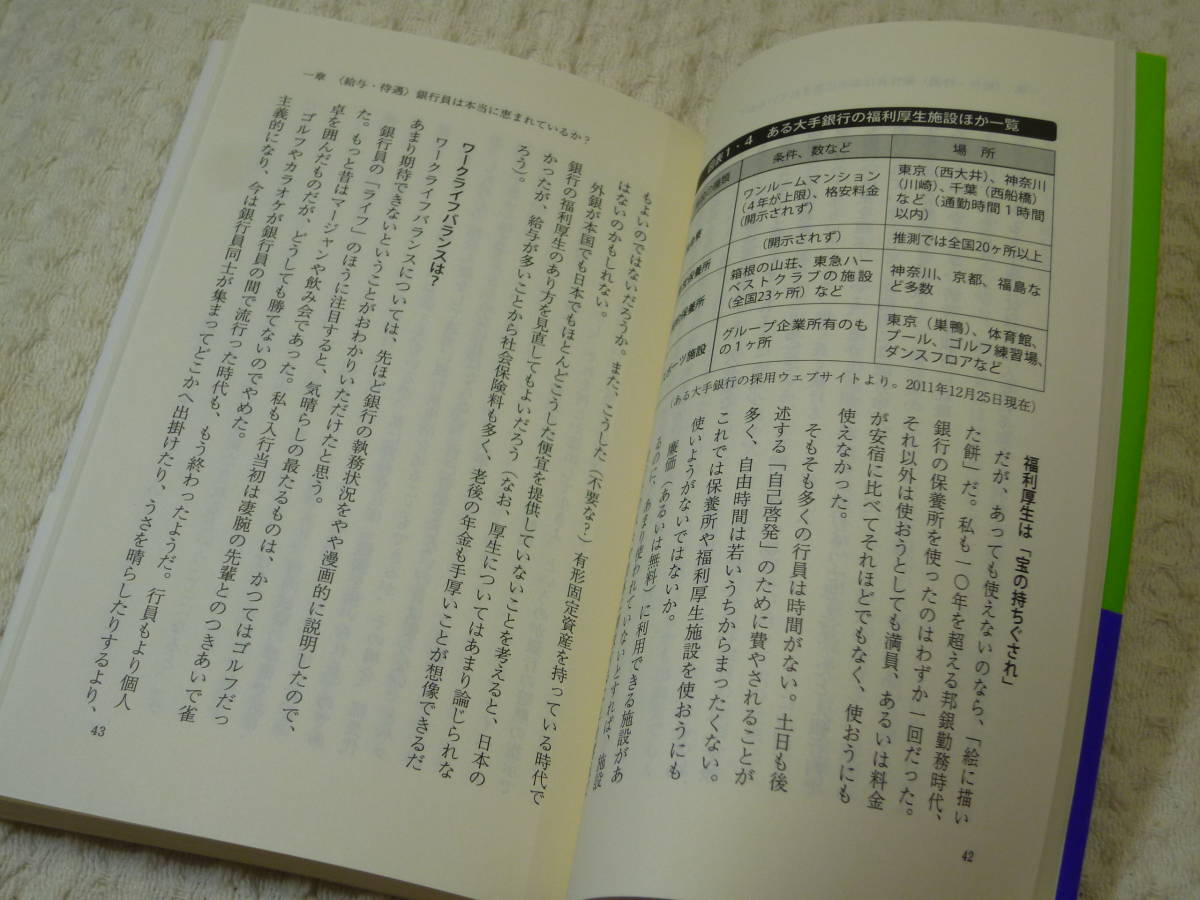 図表1・4 ある大手銀行の福利厚生施設ほか一覧
条件、数など
場 所
ワンルームマンション
（4年が上限）、格安料金
（開示されず）
東京（西大井）、神奈川
（川崎）、千葉（西船橋）
など（通勤時間1時間
以内）
（開示されず）
推測では全国20ヶ所以上
保養所
箱根の山荘、東急ハー
ベストクラブの施設
（全国23ヶ所）など
神奈川、京都、福島な
ど多数
ポーツ施設
グループ企業所有のも
の1ヶ所
東京（巣鴨）、体育館、
プール、ゴルフ練習場、
ダンスフロアなど
（ある大手銀行の採用ウェブサイトより。2011年12月25日現在）
福利厚生は「宝の持ちぐされ」
だが、あっても使えないのなら、「絵に描い
た餅」だ。私も一〇年を超える邦銀勤務時代、
銀行の保養所を使ったのはわずか一回だった。
それ以外は使おうとしても満員、あるいは料金
が安宿に比べてそれほどでもなく、使おうにも
使えなかった。
そもそも多くの行員は時間がない。土日も後
述する「自己啓発」のために費やされることが
多く、自由時間は若いうちからまったくない。
これでは保養所や福利厚生施設を使おうにも
使いようがないではないか。
廉価（あるいは無料）に利用できる施設があ
るのに、あまり使われていないとすれば、施設
42
一章 〈給与・待遇〉銀行員は本当に恵まれているか？
もよいのではないだろうか。また、こうした（不要な？）有形固定資産を持っている時代で
はないのかもしれない。
外銀が本国でも日本でもほとんどこうした便宜を提供していないことを考えると、日本の
銀行の福利厚生のあり方を見直してもよいだろう（なお、厚生についてはあまり論じられな
かったが、給与が多いことから社会保険料も多く、老後の年金も手厚いことが想像できるだ
ろう）。
ワークライフバランスは？
ワークライフバランスについては、先ほど銀行の執務状況をやや漫画的に説明したので、
あまり期待できないということがおわかりいただけたと思う。
銀行員の「ライフ」のほうに注目すると、気晴らしの最たるものは、かつてはゴルフだっ
た。もっと昔はマージャンや飲み会であった。私も入行当初は凄腕の先輩とのつきあいで雀
卓を囲んだものだが、どうしても勝てないのでやめた。
ゴルフやカラオケが銀行員の間で流行った時代も、もう終わったようだ。行員もより個人
主義的になり、今は銀行員同士が集まってどこかへ出掛けたり、うさを晴らしたりするより、
43